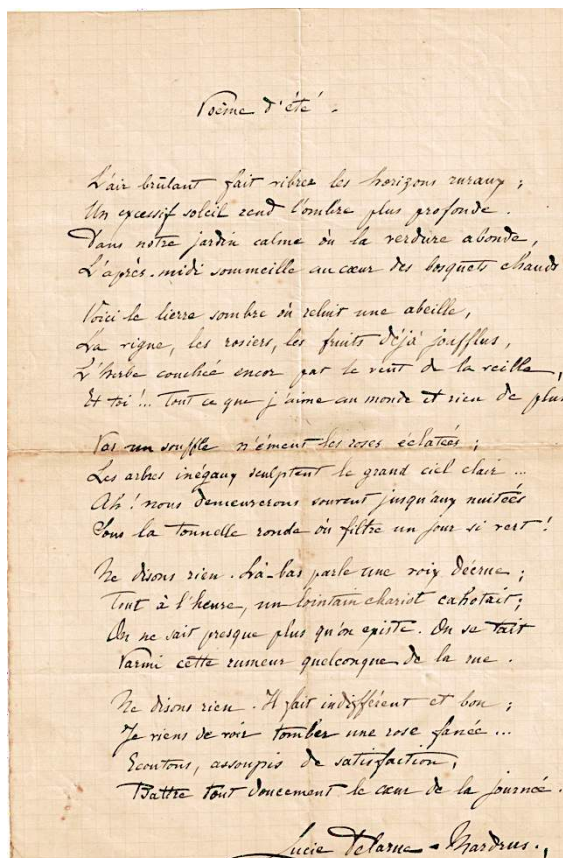 Poème d'été.
L'air brûlant fait vibrer les horizons ruraux ;
Un excessif soleil rend l'ombre plus profonde.
Dans notre jardin calme où la verdure abonde,
L'après-midi sommeille au cœur des bosquets chauds
Voici le lierre sombre où reluit une abeille,
La vigne, les rosiers, les fruits déjà joufflus,
L'herbe couchée encor par le vent de la veille,
Et toi !.. Tout ce que j'aime au monde et rien de plus
Pas un souffle n'émeut les roses éclatées ;
Les arbres inégaux sculptent le grand ciel clair ...
Ah ! nous demeurerons souvent jusqu'aux nuitées
Sous la tonnelle ronde où filtre un jour si vert !
Ne disons rien. Là-bas parle une voix décrue ;
Tout à l'heure, un lointain chariot cahotait ;
On ne sait presque plus qu'on existe. On se tait
Parmi cette rumeur quelconque de la rue.
Ne disons rien. Il fait indifférent et bon ;
Je viens de voir tomber une rose fanée ...
Ecoutons, assoupis de satisfaction,
Battre tout doucement le cœur de la journée.
Lucie Delarue-Mardrus.